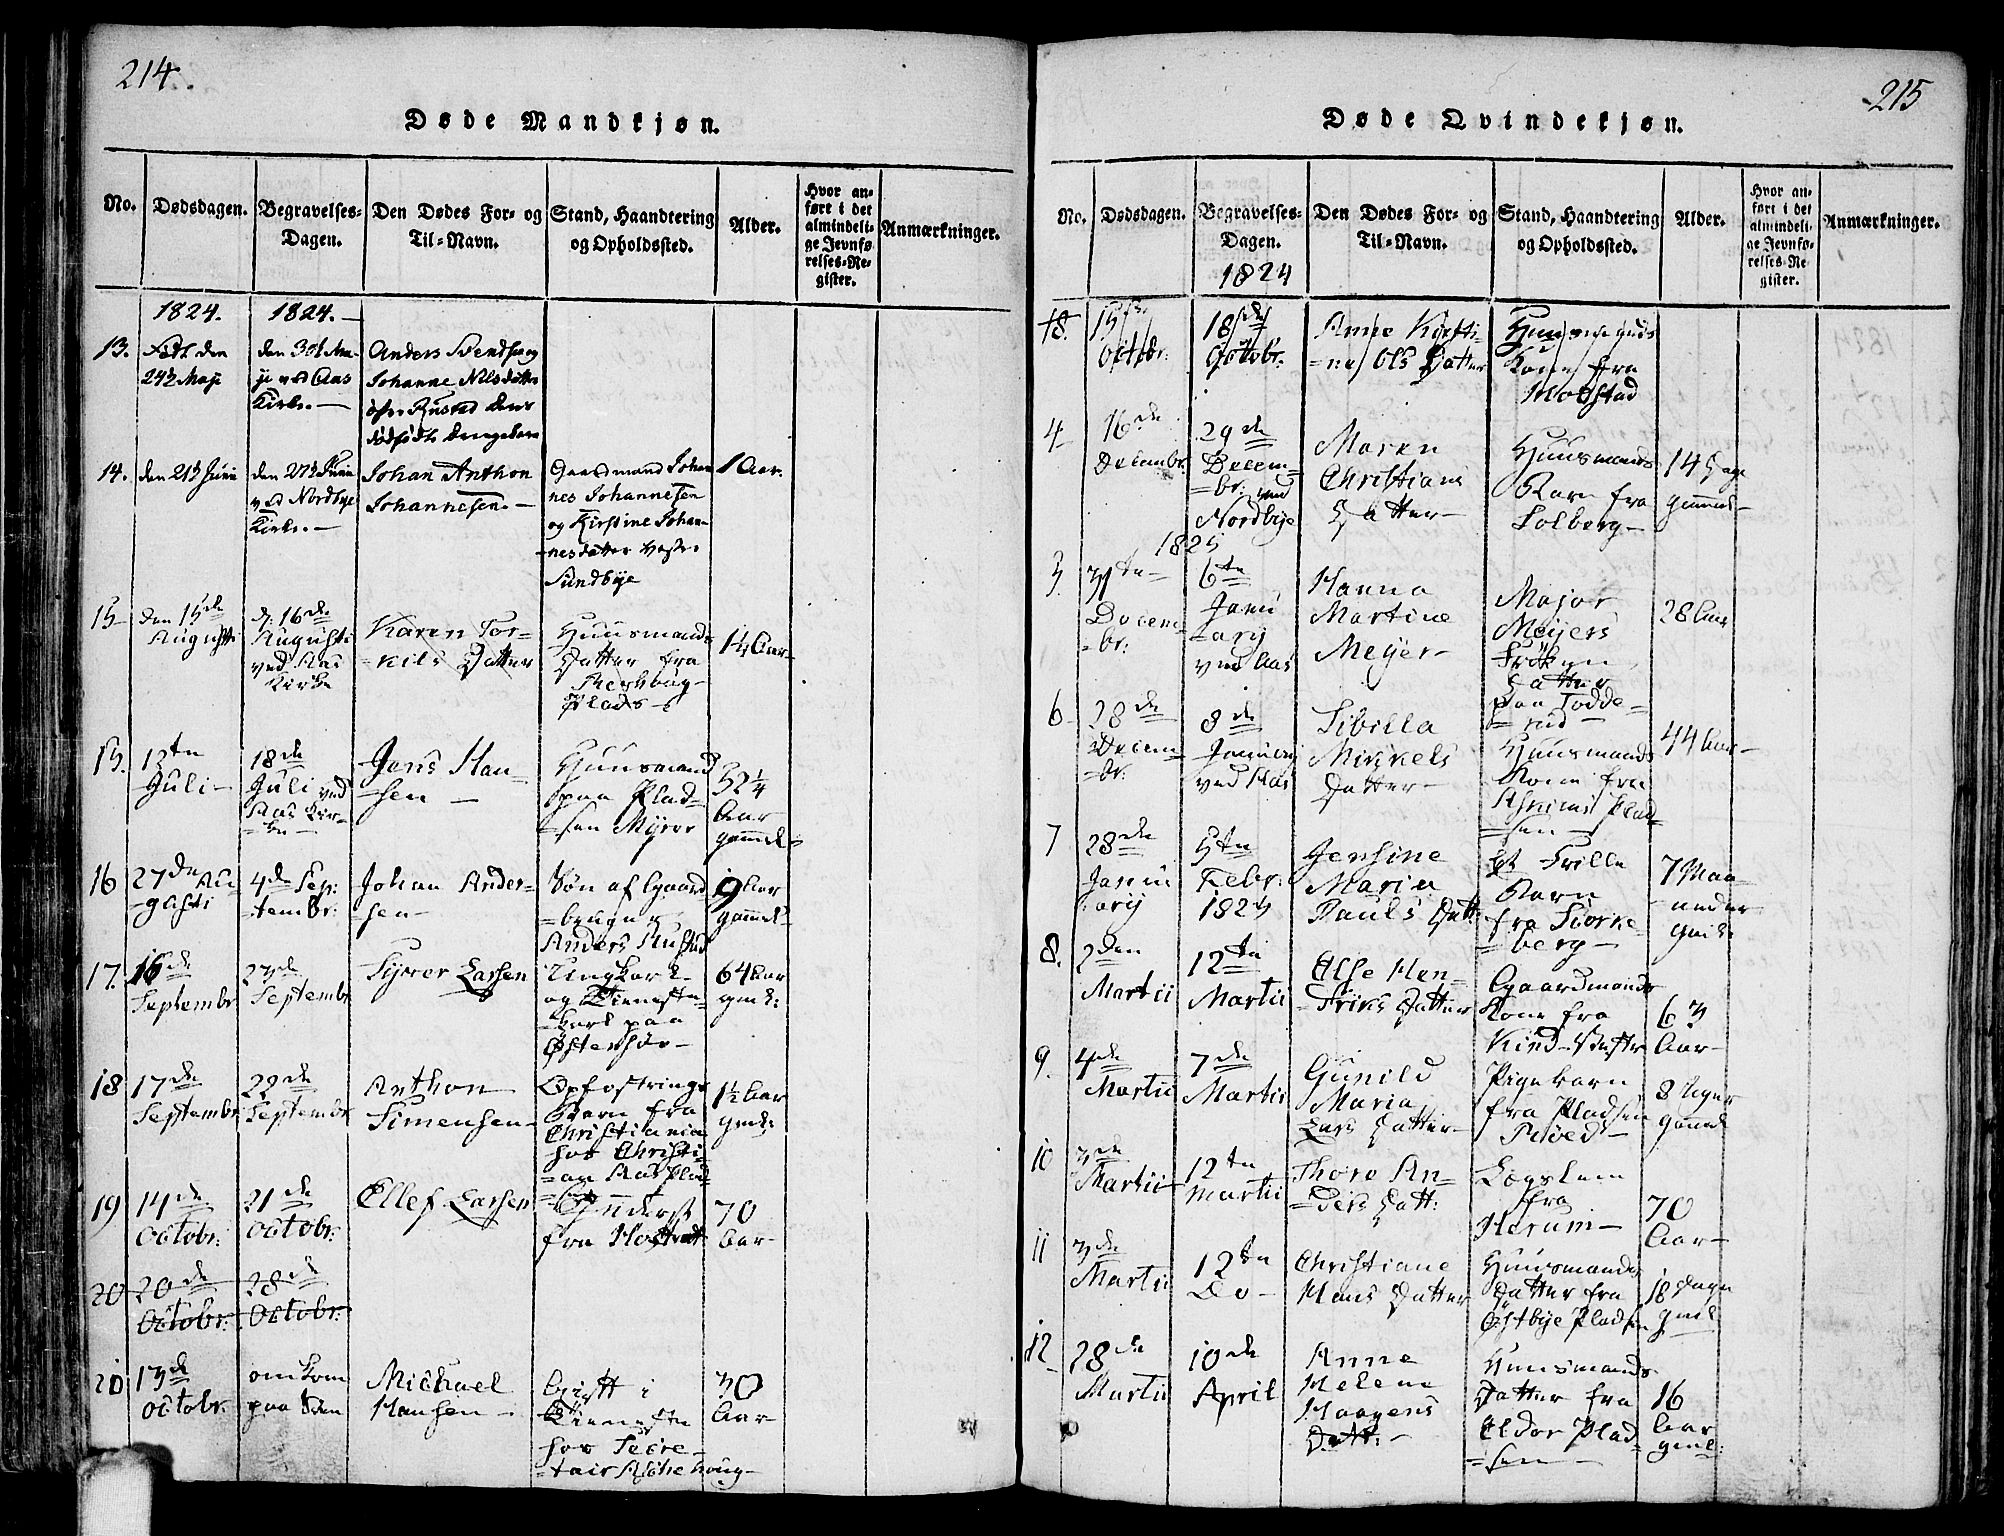 214.
Døde Mandkjøn.
No.
Dødsdagen.
Begravelses-
Dagen.
Den Dødes For- og
Til-Navn.
Stand, Haandtering
og Opholdssted.
Alder.
Hvor an-
ført i det
almindeli-
ge Jevnfø-
relses-Re-
gister.
Anmærkninger.
1824.
1824.
13.
Født den
24de Maji
den 30t Ma-
ji ved Aas
Kirke.
Anders Svendsen og
Johanne Nilsdatter
Rustad
dødfødte
14.
den 21de Junii
den 27de Junii
ved Nordbye
Kirke.
Johan Anthon
Johannesen.
Gaardmand Johan
nes Johannesen
og Kirstine Johan-
nesdatter Vestre
Sundbye
1 Aar.
15
den 15de
Augusti
d. 16de
Augusti
ved Aas
Kirke
Karen Tor-
kils Datter
Huusmands
Datter fra
Plads
1¼ Aar
15.
13tn
Juli
18de
Juli ved
Aas Kir-
ke
Jens Han-
sen
Huusmand
paa Plad-
sen Myrer
52¼
Aar
gammel
16
27de Au-
gusti
4de Sep-
tembr:
Johan Ander-
sen
Søn af Gaard
bruger
Anders Rustad
9 Aar
gammel
17.
16de
Septembr
23de
Septembr
Syver Larsen
Ungkarl
og Tieneste-
karl paa
Østensiøe
64 Aar
gml:
18
17de
Septembr
22de
Septembr
Anthon
Simensen
Opfostrings
Barn fra
Christiania
hos Christi-
an Aas Plad-
sen
1½ Aar
gml:
19
14de
Octobr:
21de
Octobr:
Ellef Larsen
fra
70
Aar
20
20de
Octobr:
28de
Octobr:
20
13de
octobr.
omkom
paa Søen
Michael
Hansen
Gift i
Tieneste
hos Secre-
tair Aschehoug
30
Aar
215
Døde Qvindekjøn.
No.
Dødsdagen.
Begravelses-
Dagen.
1824
Den Dødes For- og
Til-Navn.
Stand, Haandtering
og Opholdssted.
Alder.
Hvor an-
ført i det
almindeli-
ge Jevnfø-
relses-Re-
gister.
Anmærkninger.
18.
15de
Octobr:
18de
Octobr:
Anne Kirsti-
ne Ols Datter
Huusmands
Kone fra
Mogstad
4
16de
Decembr.
29de
Decem-
br: ved
Nordbye
Maren
Christians
Datter
Huusmands
Barn fra
Solberg
14 Dage
gammel
1825
31te
Decem-
br:
6te
Janu
ary
ved Aas
Hanna
Martine
Meyer
Major
Meyers
Frøken
Datter
paa Todde-
rud
28 Aar
6
28de
Decem-
br:
8de
January
ved Aas
Sibilla
Mikkels
Datter
Huusmands
Kone fra
Askims Plad-
sen
44 Aar
7
28de
Janu
ary
5te
Febr:
1825
Jensine
Maria
Pauls Datt:
Barn
fra Storke-
berg
7 Maa-
neder
gml:
8.
2den
Martii
12te
Martii
Else Hen-
driks Datter
Gaardmands
Kone fra
Kind Vestre
63
Aar
9.
4de
Martii
7de
Martii
Gunild
Maria
Lars Datter
Pigebarn
fra Pladsen
Tveed
8 Uger
gammel
10
3de
Martii
12te
Martii
Thore An-
ders Datt:
Lægslem
fra
Herum
70
Aar
11
3de
Martii
12te
Do
Christiane
Hans Datter
Huusmands
Datter fra
Østbye Pladsen
18 Dage
gml
12
28de
Martii
10de
April
Anne
Helene
Haagens
Datt:
Huusmands
Datter fra
Eldor Plad-
sen
16
Aar
gml: